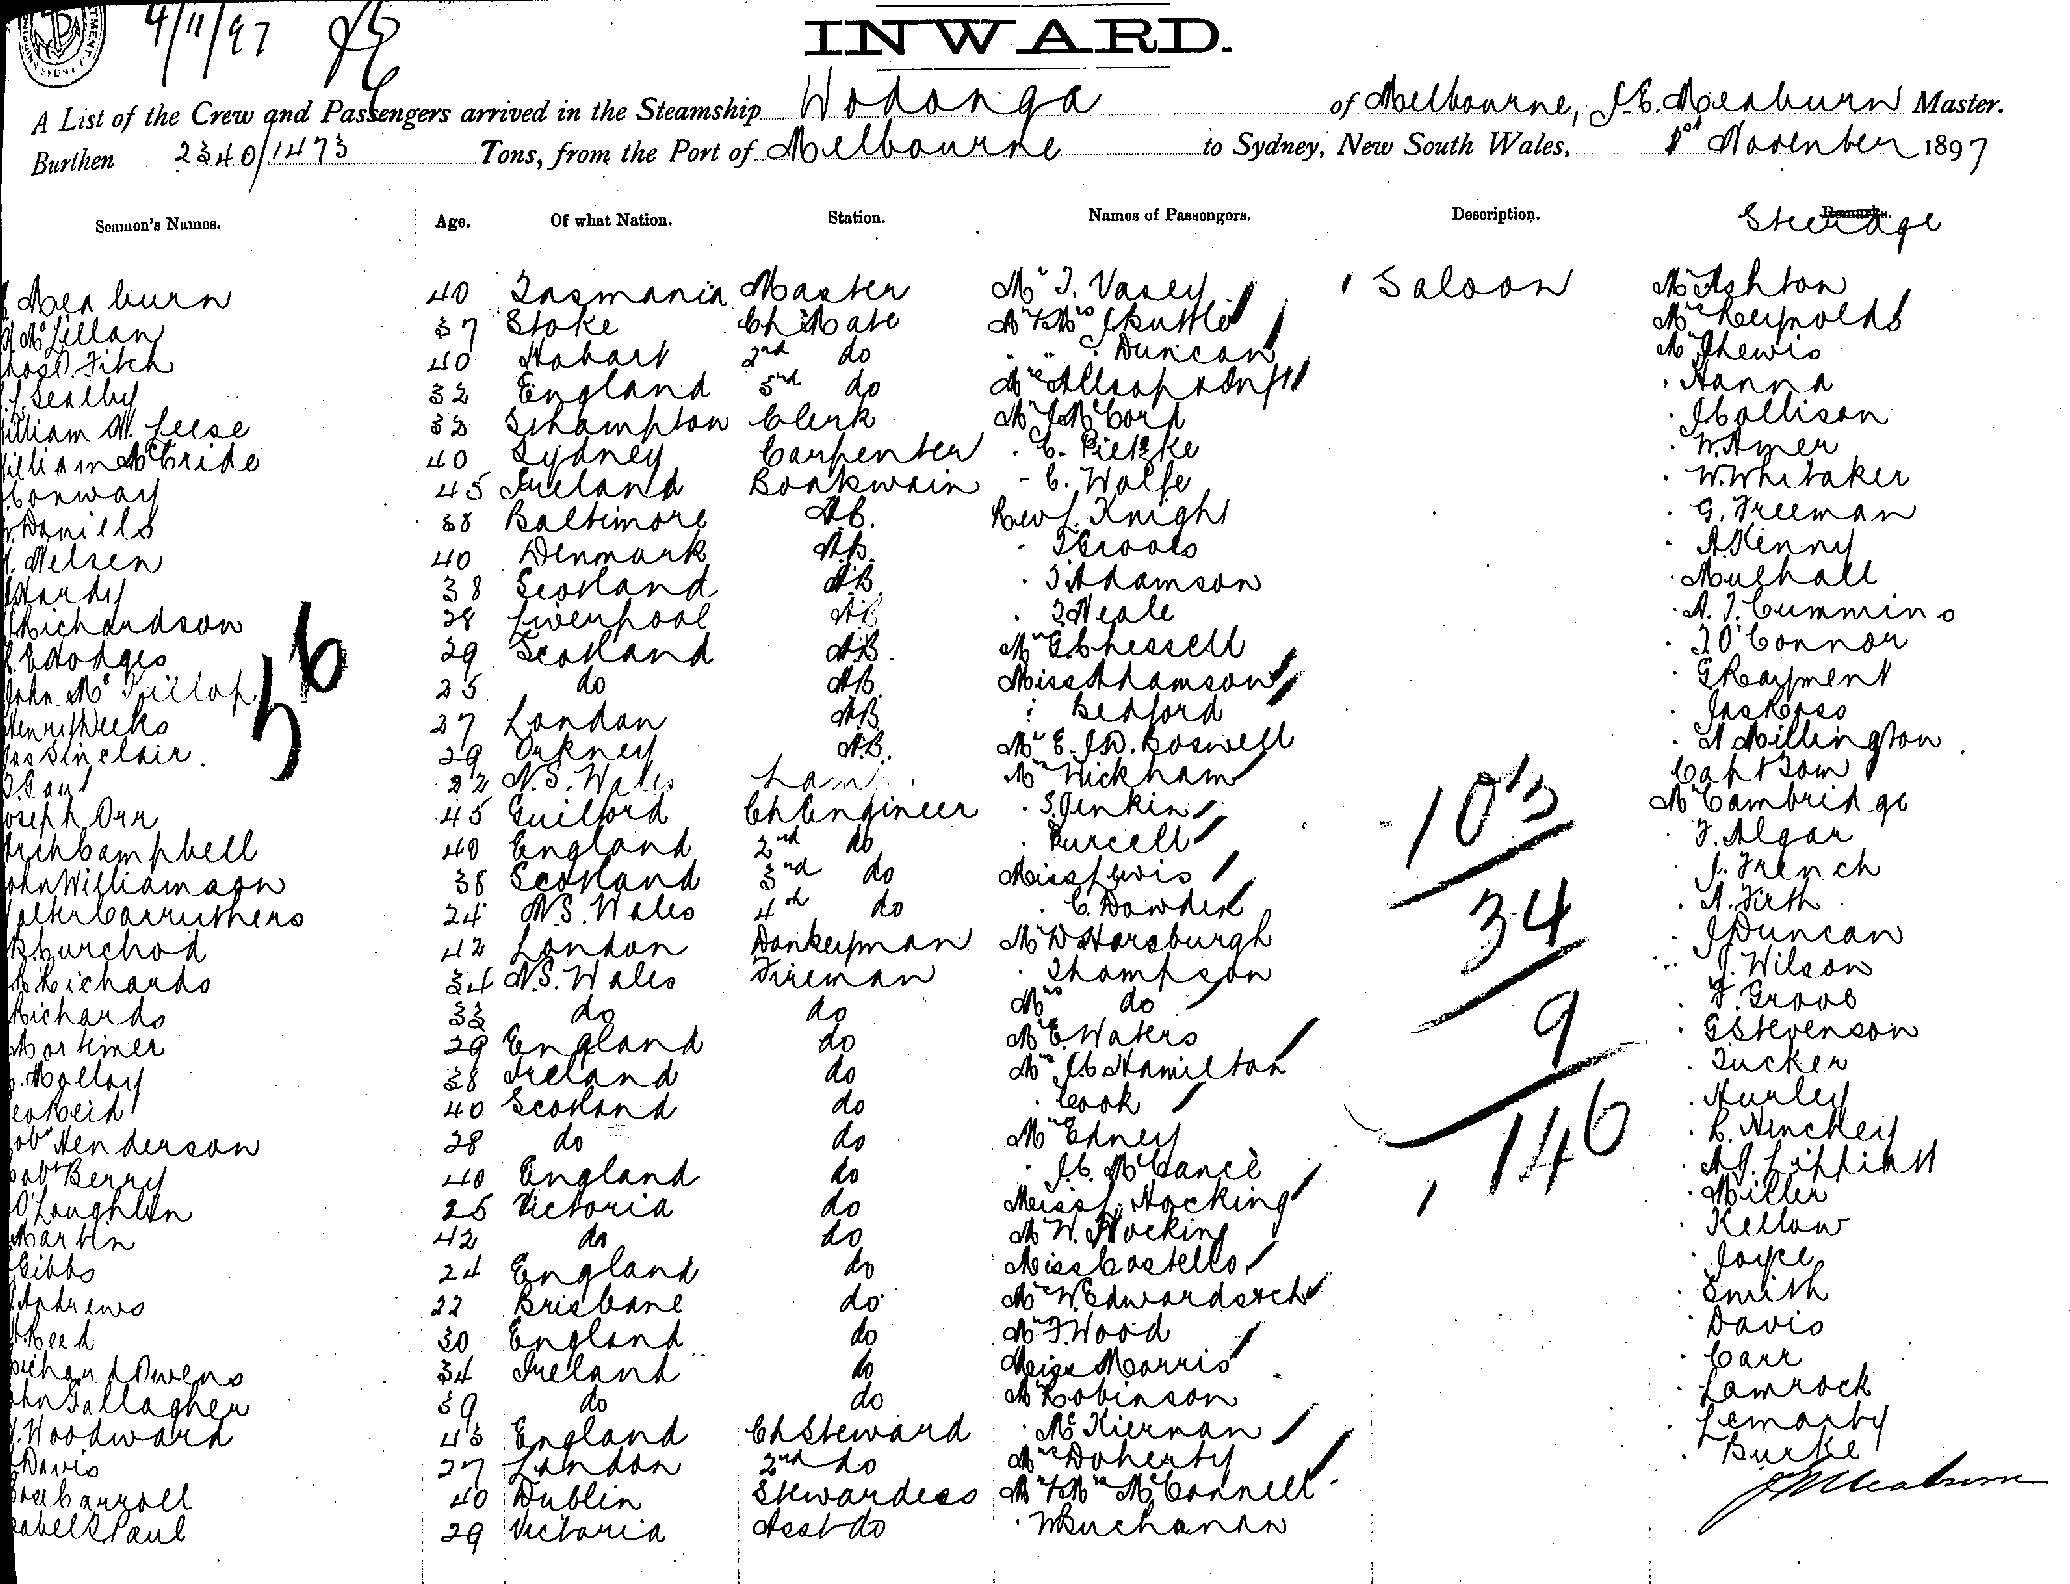 4/11/97
INWARD.
A List of the Crew and Passengers arrived in the Steamship Wodonga of Melbourne, J.E. Meaburn Master.
Burthen 2340/1473 Tons, from the Port of Melbourne to Sydney, New South Wales, 1st November 1897
Seamen's Names. Age. Of what Nation. Station. Names of Passengers. Description. Remarks.
Steerage
Meaburn 40 Tasmania Master Mr T. Vasey Saloon Mr Ashton
McLellan 37 Stoke Ch Mate Mr & Mrs J Buttle Mr Reynolds
Fitch 40 Hobart 2nd do " " Duncan Mr Jhewis
Sealby 32 England 3rd do Mrs Allsop & Inft Hanna
William M. Leese 33 Schampton Clerk Mr J McCord J Collison
William McBride 40 Sydney Carpenter C. Pietzke W. Amer
Conway 45 Ireland Boatswain C. Wolfe W. Whitaker
Daniells 38 Baltimore AB. Rev L. Knight G. Freeman
Nelsen 40 Denmark AB. T Groves A Kenny
Hardy 38 Scotland AB T Adamson Mulhall
Richardson 28 Liverpool AB T Neale A. J. Cummins
Hodges 29 Scotland AB. Mr G Chessell T O'Connor
John McKillop 25 do AB. Miss Adamson G Rayment
Henry Weeks 27 London AB Bedford Jas Ross
Jas Sinclair. 29 Orkney AB. Mr E. J. D. Boswell A Millington
22 N.S. Wales Lam Mr Wickham Capt Bow
Joseph Orr 45 Guilford Ch Engineer S. Jenkin Mr Cambridge
Arch Campbell 40 England 2nd do Purcell F. Algar
John Williamson 38 Scotland 3rd do Miss Lewis J. French
Walter Carruthers 24 N.S. Wales 4th do C. Dowden A. Firth
Burchod 42 London Donkeyman Mr D Horsburgh J Duncan
Richards 34 N.S. Wales Fireman Thompson J. Wilson
Richards 33 do do Mrs do F. Groves
Mortimer 29 England do Mr E. Waters G Stevenson
Molloy 38 Ireland do Mrs J C Hamilton Tucker
Geo Reid 40 Scotland do Cook Hurley
Robt Henderson 28 do do Mr Edney R. Hinchey
Robt Berry 40 England do J. C. McCance A J. Lippiatt
O'Loughlin 25 Victoria do Miss L. Hocking Miller
Martin 42 do do Mr W. Hocking Kellow
Gibbs 24 England do Miss Costello Joyce
Andrews 22 Brisbane do Mrs W Edwards & ch Smith
Reed 30 England do Mr F. Wood Davis
Richard Owens 34 Ireland do Miss Morris Carr
John Gallagher 39 do do Mr Robinson Lamrock
Woodward 43 England Ch Steward McKiernan Lemarby
Davis 27 London 2nd do Mrs Doherty Burke
Carroll 40 Dublin Stewardess Mr & Mrs McConnell
Isabell Paul 29 Victoria Asst do W Buchanan
56
103
34
9
146
J E Meaburn